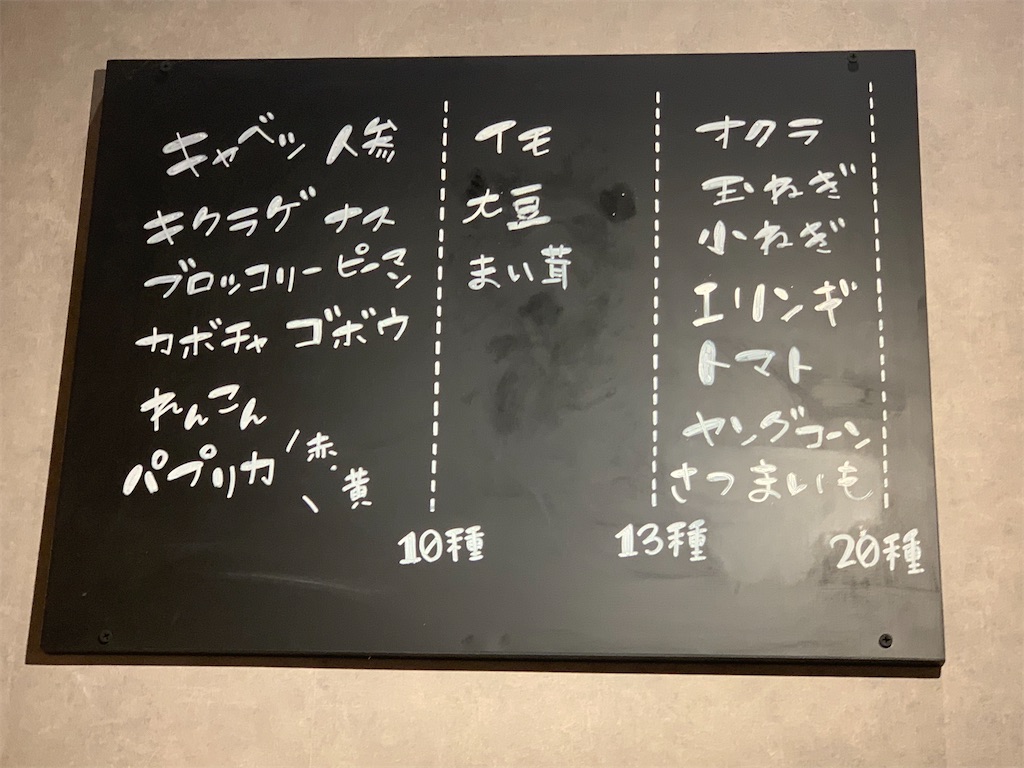 キャベツ 人参
キクラゲ ナス
ブロッコリー ピーマン
カボチャ ゴボウ
れんこん
パプリカ(赤.黄
10種
イモ
大豆
まい茸
13種
オクラ
玉ねぎ
小ねぎ
エリンギ
トマト
ヤングコーン
さつまいも
20種